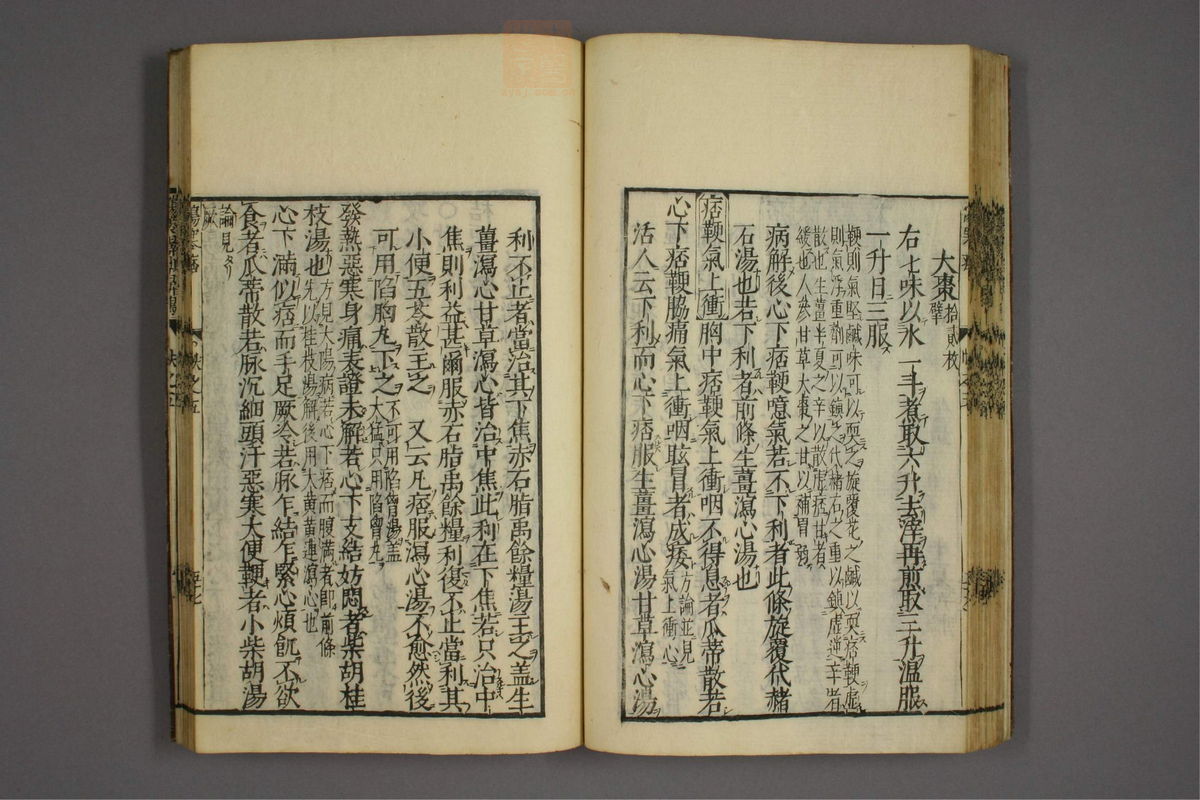 大棗擘拾貳枚
右七味以水一斗煮取六升去滓再煎取三升溫服
一升日三服
鞕則氣堅鹹味可以耎之旋覆花之鹹以耎痞鞕虛
則氣浮重劑可以鎮之代赭石之重以鎮虛逆辛者
散也生薑半夏之辛以散虛痞甘者
緩也人參甘草大棗之甘以補胃弱
病解後心下痞鞕噫氣若不下利者此條旋覆代赭
石湯也若下利者前條生薑瀉心湯也
痞鞕氣上衝胸中痞鞕氣上衝咽不得息者瓜蒂散若
心下痞鞕脇痛氣上衝咽眩冒者成痿方論並見氣上衝心
活人云下利而心下痞服生薑瀉心湯甘草瀉心湯
利不止者當治其下焦赤石脂禹餘糧湯主之盖生
薑瀉心甘草瀉心皆治中焦此利在下焦若只治中
焦則利益甚爾服赤石脂禹餘糧利復不止當利其
小便五苓散主之 又云凡痞服瀉心湯不愈然後
可用陷胸丸下之不可用陷胷湯盖大猛只用陷胷丸
發熱惡寒身痛表證未解若心下支結妨悶者柴胡桂
枝湯也方見太陽病若心下痞而腹滿者即前條先以桂枝湯解後用大黃黃連瀉心也
心下滿似痞而手足厥冷若脉乍結乍緊心煩飢不欲
食者瓜蒂散若脉沉細頭汗惡寒大便鞕者小柴胡湯
論見厥